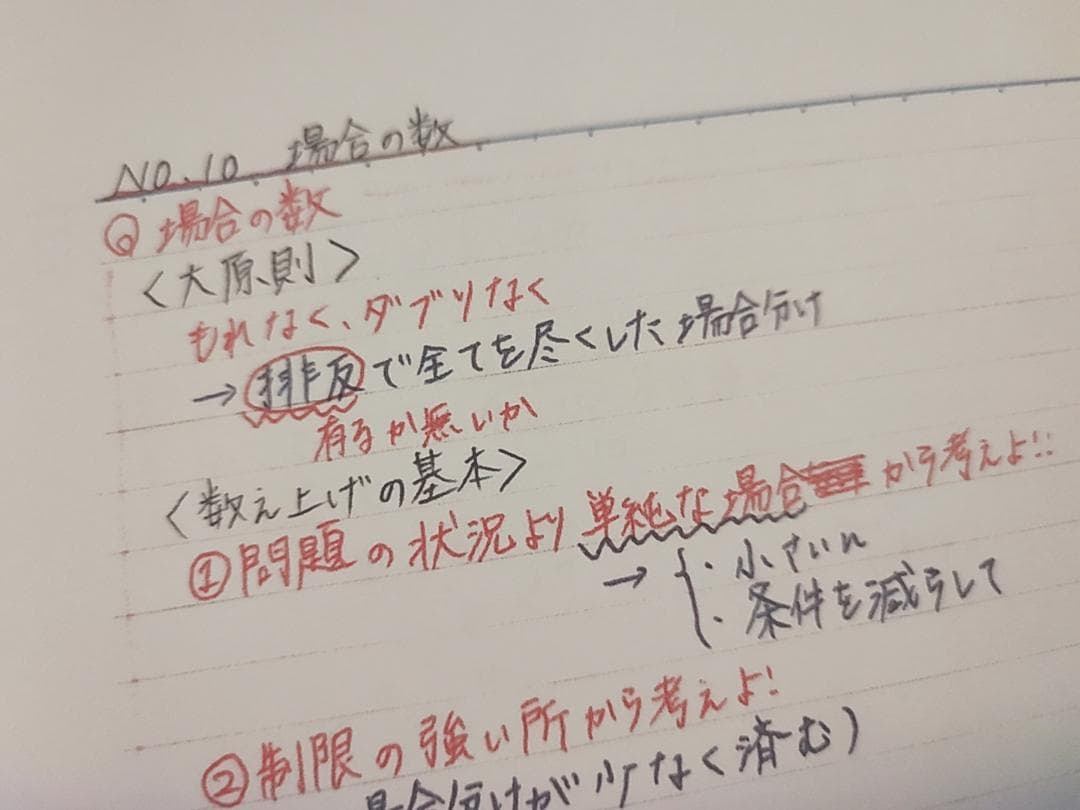 NO.10 場合の数
Q 場合の数
〈大原則〉
もれなく、ダブりなく
→ 排反で全てを尽くした場合分け
有るか無いか
〈数え上げの基本〉
①問題の状況より単純な場合から考えよ!!
→ { ・小さいn
・条件を減らして
②制限の強い所から考えよ!
場合分けが少なく済む)